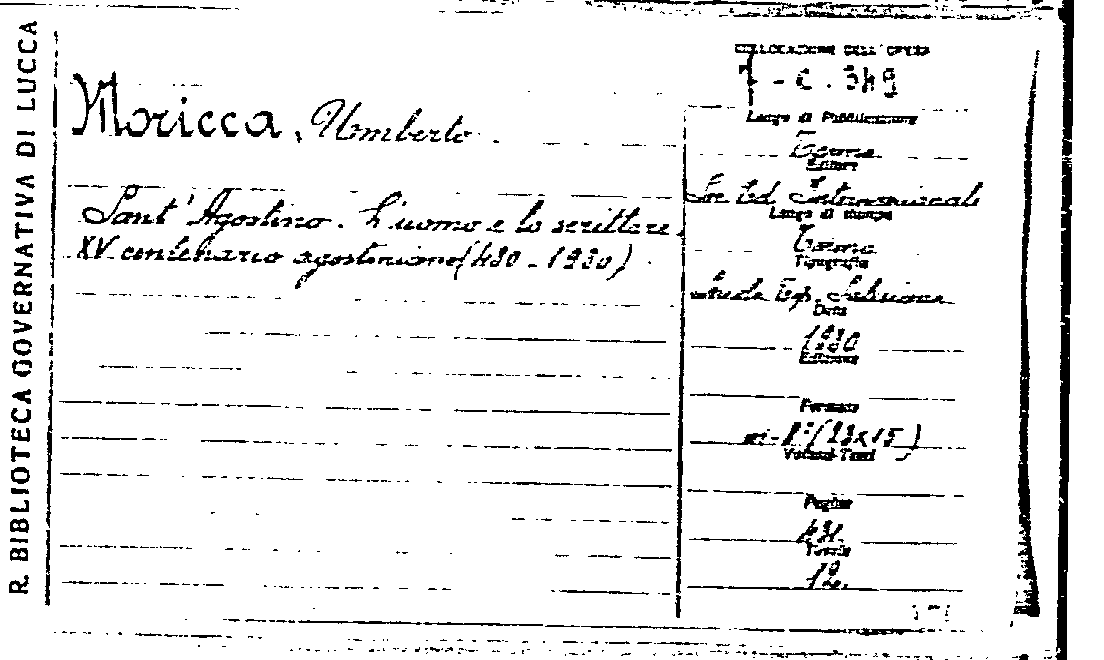 R. BIBLIOTECA GOVERNATIVA DI LUCCA
COLLOCAZIONE DELL'OPERA
Moricca, Umberto
Luogo di Pubblicazione
Torino
Editore
Soc. Ed. Internazionale
Sant'Agostino. L'uomo e lo scrittore.
XV centenario agostiniano (430-1930)
Luogo di stampa
Torino
Tipografia
Data
1930
Edizione
Formato
in-8° (23x15)
Volumi-Tomi
Pagine
Tavole
12.